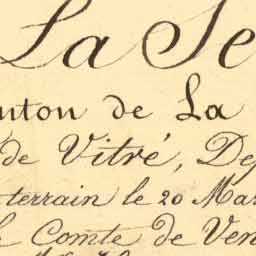 La Se
nton de La
de Vitré, De
terrain le 20 Mar
Comte de Ven